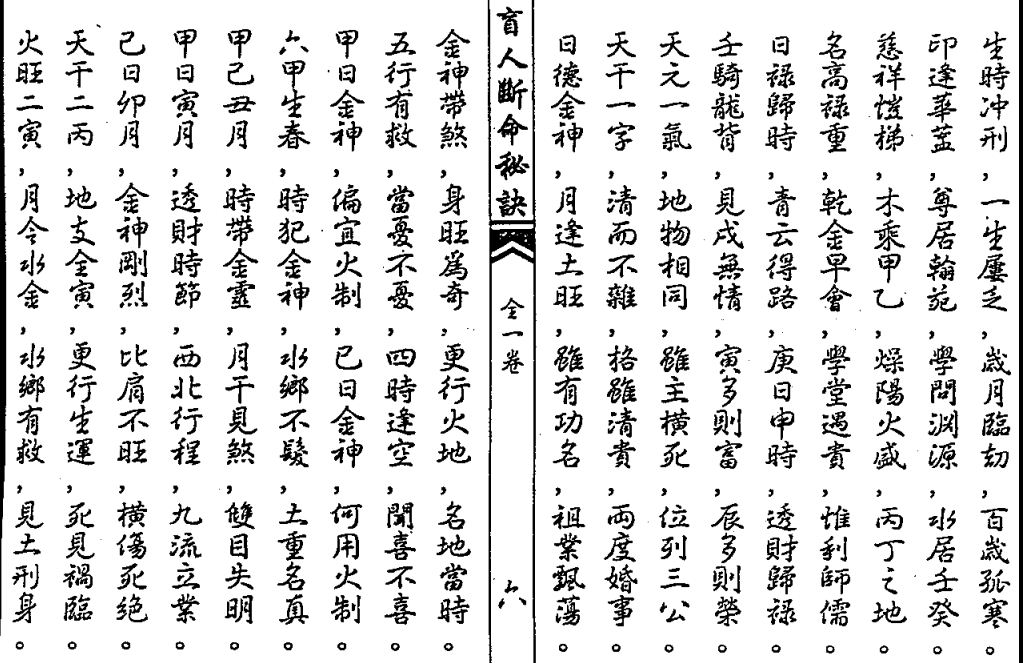 生時冲刑，一生屢乏，歲月臨劫，百歲孤寒。
印逢華蓋，尊居翰苑，學問渊源，水居壬癸。
慈祥愷悌，木乘甲乙，燥陽火盛，丙丁之地。
名高祿重，乾金早會，學堂遇貴，惟利師儒。
日祿歸時，青云得路，庚日申時，透財歸祿。
壬騎龍背，見戌無情，寅多則富，辰多則榮。
天元一氣，地物相同，雖主橫死，位列三公。
天干一字，清而不雜，格雖清貴，両度婚事。
日德金神，月逢土旺，雖有功名，祖業飄蕩。
盲人斷命秘訣
全一卷
六
金神帶煞，身旺爲奇，更行火地，名地當時。
五行有救，當憂不憂，四時逢空，聞喜不喜。
甲日金神，偏宜火制，己日金神，何用火制。
六甲生春，時犯金神，水鄉不發，土重名真。
甲己丑月，時帶金靈，月干見煞，雙目失明。
甲日寅月，透財時節，西北行程，九流立業。
己日卯月，金神剛烈，比肩不旺，橫傷死絕。
天干二丙，地支全寅，更行生運，死見禍臨。
火旺二寅，月令水金，水鄉有救，見土刑身。